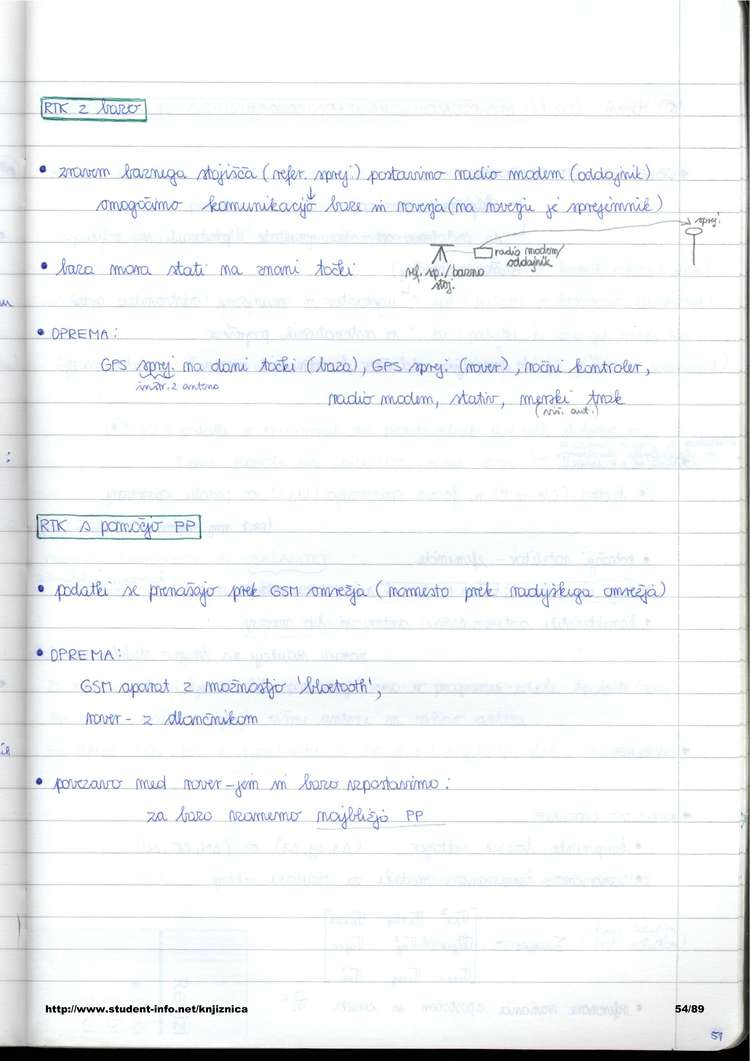 RTK z bazo
• zraven baznega stojišča (refer. sprej.) postavimo radio modem (oddajnik)
↓
omogočimo komunikacijo baze in roverja (na roverju je sprejemnik)
sprej.
radio modem/
oddajnik
ref. sp./bazno
stoj.
• baza mora stati na znani točki
• OPREMA:
GPS sprej. na dani točki (baza), GPS sprej. (rover), ročni kontroler,
instr. z anteno
radio modem, stativ, merski trak
(viš. ant.)
RTK s pomočjo PP
• podatki se prenašajo prek GSM omrežja (namesto prek radijskega omrežja)
• OPREMA:
GSM aparat z možnostjo 'bloetooth',
rover - z dlančnikom
• povezavo med rover-jem in bazo vzpostavimo:
za bazo vzamemo najbližjo PP
http://www.student-info.net/knjiznica
54/89
51